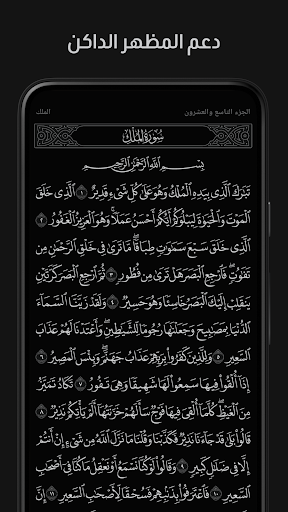 دعم المظهر الداكن
الجزء التاسع والعشرون
الملك
سُورَةُ المُلْكِ
بِسْمِ اللَّهِ الرَّحْمَٰنِ الرَّحِيمِ
تَبَٰرَكَ ٱلَّذِي بِيَدِهِ ٱلْمُلْكُ وَهُوَ عَلَىٰ كُلِّ شَيْءٍ قَدِيرٌ ١ ٱلَّذِي خَلَقَ
ٱلْمَوْتَ وَٱلْحَيَوٰةَ لِيَبْلُوَكُمْ أَيُّكُمْ أَحْسَنُ عَمَلًا وَهُوَ ٱلْعَزِيزُ ٱلْغَفُورُ
٢ ٱلَّذِي خَلَقَ سَبْعَ سَمَٰوَٰتٍ طِبَاقًا مَّا تَرَىٰ فِي خَلْقِ ٱلرَّحْمَٰنِ مِن
تَفَٰوُتٍ فَٱرْجِعِ ٱلْبَصَرَ هَلْ تَرَىٰ مِن فُطُورٍ ٣ ثُمَّ ٱرْجِعِ ٱلْبَصَرَ كَرَّتَيْنِ
يَنقَلِبْ إِلَيْكَ ٱلْبَصَرُ خَاسِئًا وَهُوَ حَسِيرٌ ٤ وَلَقَدْ زَيَّنَّا ٱلسَّمَآءَ
ٱلدُّنْيَا بِمَصَٰبِيحَ وَجَعَلْنَٰهَا رُجُومًا لِّلشَّيَٰطِينِ وَأَعْتَدْنَا لَهُمْ عَذَابَ
ٱلسَّعِيرِ ٥ وَلِلَّذِينَ كَفَرُوا۟ بِرَبِّهِمْ عَذَابُ جَهَنَّمَ وَبِئْسَ ٱلْمَصِيرُ ٦
إِذَآ أُلْقُوا۟ فِيهَا سَمِعُوا۟ لَهَا شَهِيقًا وَهِيَ تَفُورُ ٧ تَكَادُ تَمَيَّزُ
مِنَ ٱلْغَيْظِ كُلَّمَآ أُلْقِيَ فِيهَا فَوْجٌ سَأَلَهُمْ خَزَنَتُهَآ أَلَمْ يَأْتِكُمْ نَذِيرٌ ٨
قَالُوا۟ بَلَىٰ قَدْ جَآءَنَا نَذِيرٌ فَكَذَّبْنَا وَقُلْنَا مَا نَزَّلَ ٱللَّهُ مِن شَيْءٍ إِنْ أَنتُمْ
إِلَّا فِي ضَلَٰلٍ كَبِيرٍ ٩ وَقَالُوا۟ لَوْ كُنَّا نَسْمَعُ أَوْ نَعْقِلُ مَا كُنَّا فِيٓ أَصْحَٰبِ
ٱلسَّعِيرِ ١٠ فَٱعْتَرَفُوا۟ بِذَنۢبِهِمْ فَسُحْقًا لِّأَصْحَٰبِ ٱلسَّعِيرِ ١١